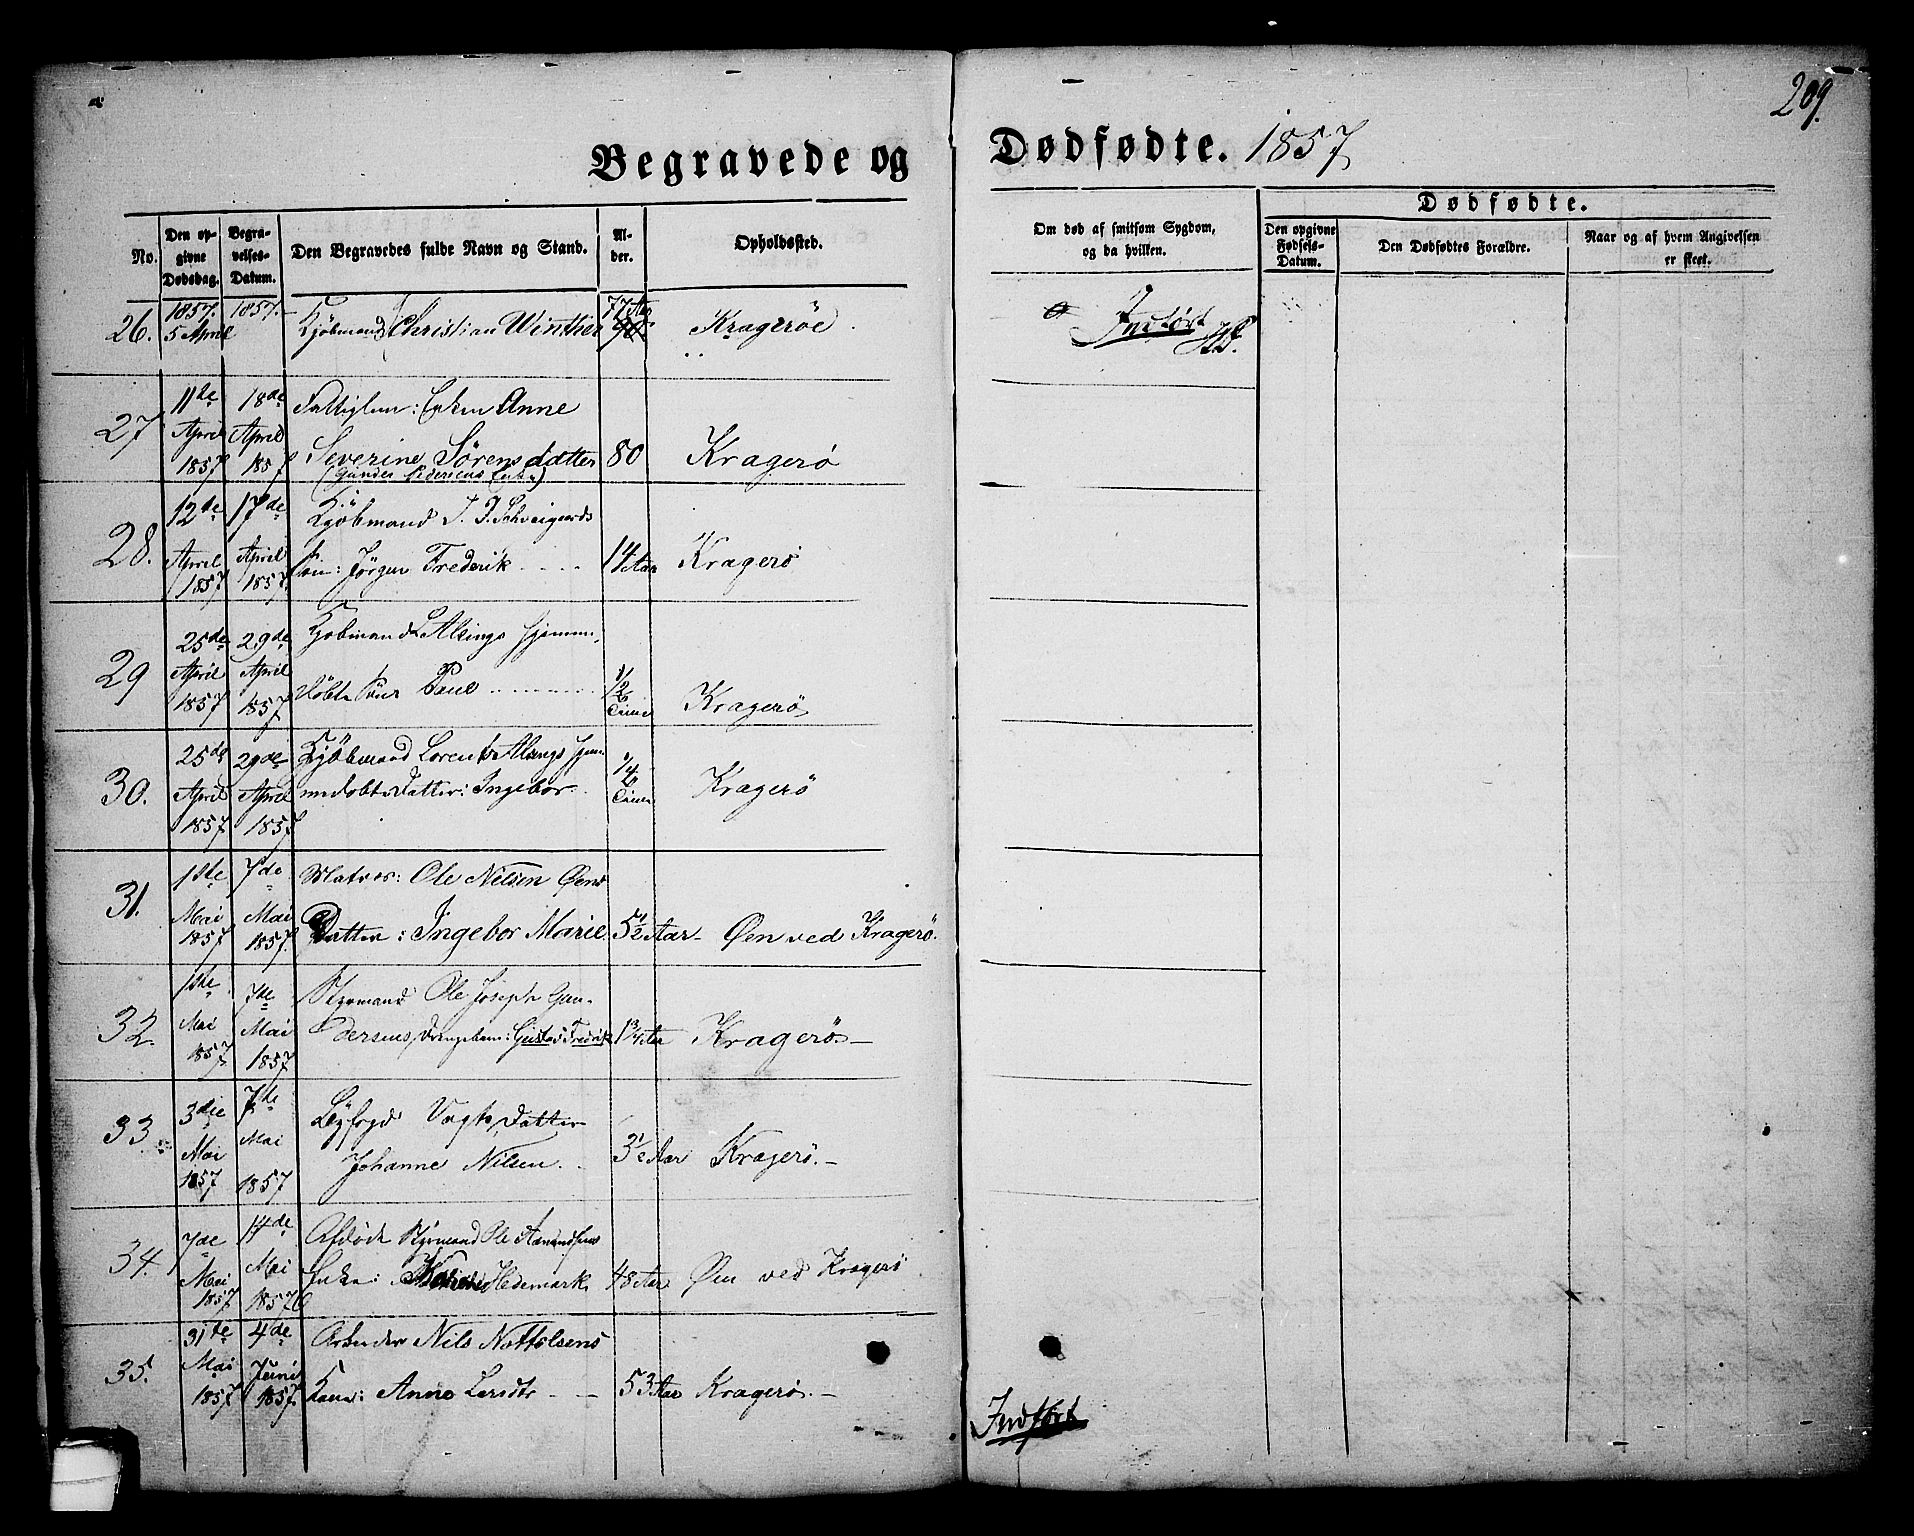 209.
Begravede og Dødfødte. 1857
No.
Den opgivne Dødsdag.
Begravelses-Datum.
Den Begravedes fulde Navn og Stand.
Alder.
Opholdssted.
Om død af smitsom Sygdom, og da hvilken.
Dødfødte.
Den opgivne Fødsels-Datum.
Den Dødfødtes Forældre.
Naar og af hvem Angivelsen er skeet.
26. 1857. 5 April 1857. Kjøbmand Christian Winther 77 Aar Kragerøe
Indført
27 11te April 1857 18de April 1857 Fattiglem: Enken Anne
Severine Sörensdatter 80 Kragerö
(Gunder Pedersens Enke)
28. 12te April 1857 17de April 1857. Kjöbmand J. P. Schweigaards
Sön: Jörgen Frederik 14 Aar Kragerö
29 25de April 1857 29de April 1857 Kjöbmand L Alsings hjemme
döbte Sön Paul 1/2 Time Kragerö
30. 25de April 1857 29de April 1857 Kjöbmand Lorents Alsings hjem
medöbte Datter: Ingebor 1/4 Time Kragerö
31. 1ste Mai 1857 7de Mai 1857 Matros: Ole Nilsen Øens
Datter: Ingebor Marie 5 1/2 Aar Øen ved Kragerö.
32. 1ste Mai 1857 7de Mai 1857 Styrmand Ole Joseph Gun-
dersens Drengebarn: Gustav Fredrik 1 3/4 Aar Kragerö
33. 3die Mai 1857 7de Mai 1857 Byfogd Vogts Datter
Johanne Nilsen 3 1/2 Aar Kragerö.
34. 7de Mai 1857 14de Mai 1857 Afdöde Styrmand Ole Aanundsens
Enke: Hedemark 48 Aar Øen ved Kragerö
35. 31te Mai 1857 4de Juni 1857. Arbeider Nils Nottolsens
Kone: Anne Larsdtr 53 Aar Kragerö.
Indført